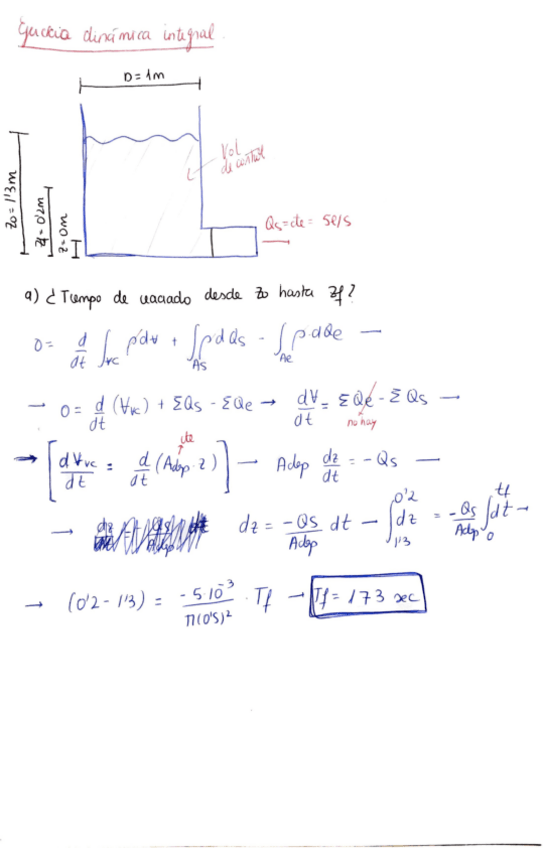 Ejercicio dinámica integral.
D = 1m
Vol de control
Z0 = 1'3m
Zf = 0'2m
z = 0m
Qs = cte = 5l/s
a) ¿Tiempo de vaciado desde Z0 hasta Zf?
0 = d/dt ∫VC ρ·d∀ + ∫As ρ·dQs - ∫Ae ρ·dQe —
→ 0 = d/dt (∀vc) + ΣQs - ΣQe → d∀/dt = ΣQe - ΣQs —
no hay
cte
→ [d∀vc/dt = d/dt (Adep · z)] — Adep dz/dt = -Qs —
→ dz = -Qs/Adep dt — ∫1'3^0'2 dz = -Qs/Adep ∫0^tf dt →
→ (0'2 - 1'3) = -5·10^-3/π(0'5)² · Tf → Tf = 173 sec